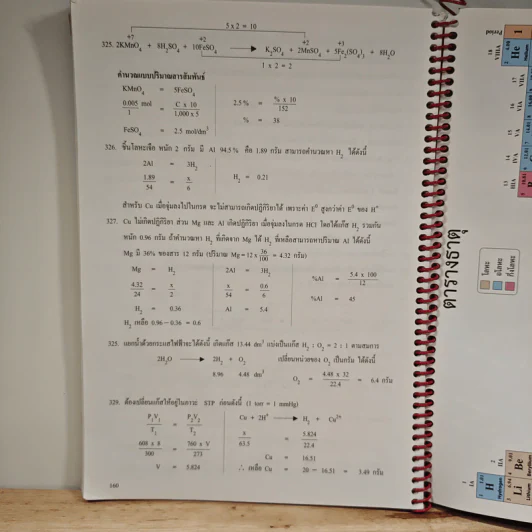 5 x 2 = 10
+7 +2 +2 +3
325. 2KMnO4 + 8H2SO4 + 10FeSO4 → K2SO4 + 2MnSO4 + 5Fe2(SO4)3 + 8H2O
1 x 2 = 2
คำนวณแบบปริมาณสารสัมพันธ์
KMnO4 = 5FeSO4
0.005/1 mol = C x 10/1,000 x 5 2.5% = % x 10/152
% = 38
FeSO4 = 2.5 mol/dm3
326. ชิ้นโลหะเจือ หนัก 2 กรัม มี Al 94.5% คือ 1.89 กรัม สามารถคำนวณหา H2 ได้ดังนี้
2Al = 3H2
1.89/54 = x/6 H2 = 0.21
สำหรับ Cu เมื่อจุ่มลงไปในกรด จะไม่สามารถเกิดปฏิกิริยาได้ เพราะค่า E0 สูงกว่าค่า E0 ของ H+
327. Cu ไม่เกิดปฏิกิริยา ส่วน Mg และ Al เกิดปฏิกิริยา เมื่อจุ่มลงในกรด HCl โดยได้แก๊ส H2 รวมกัน
หนัก 0.96 กรัม ถ้าคำนวณหา H2 ที่เกิดจาก Mg ได้ H2 ที่เหลือสามารถหาปริมาณ Al ได้ดังนี้
Mg มี 36% ของสาร 12 กรัม (ปริมาณ Mg = 12 x 36/100 = 4.32 กรัม)
Mg = H2 2Al = 3H2
4.32/24 = x/2 x/54 = 0.6/6 %Al = 5.4 x 100/12
H2 = 0.36 Al = 5.4 %Al = 45
H2 เหลือ 0.96 − 0.36 = 0.6
325. แยกน้ำด้วยกระแสไฟฟ้าจะได้ดังนี้ เกิดแก๊ส 13.44 dm3 แบ่งเป็นแก๊ส H2 : O2 = 2 : 1 ตามสมการ
2H2O → 2H2 + O2 เปลี่ยนหน่วยของ O2 เป็นกรัม ได้ดังนี้
8.96 4.48 dm3 O2 = 4.48 x 32/22.4 = 6.4 กรัม
329. ต้องเปลี่ยนแก๊สให้อยู่ในภาวะ STP ก่อนดังนี้ (1 torr = 1 mmHg)
P1V1/T1 = P2V2/T2 Cu + 2H+ → H2 + Cu2+
608 x 8/300 = 760 x V/273 x/63.5 = 5.824/22.4
Cu = 16.51
V = 5.824 ∴ เหลือ Cu = 20 − 16.51 = 3.49 กรัม
160
ตารางธาตุ
โลหะ
อโลหะ
กึ่งโลหะ
Period
1
18
VIIIA
He
17
VIIA
16
VIA
15
VA
14
IVA
13
IIIA
1
IA
H
Hydrogen
2
IIA
Li
Lithium
Be
Beryllium